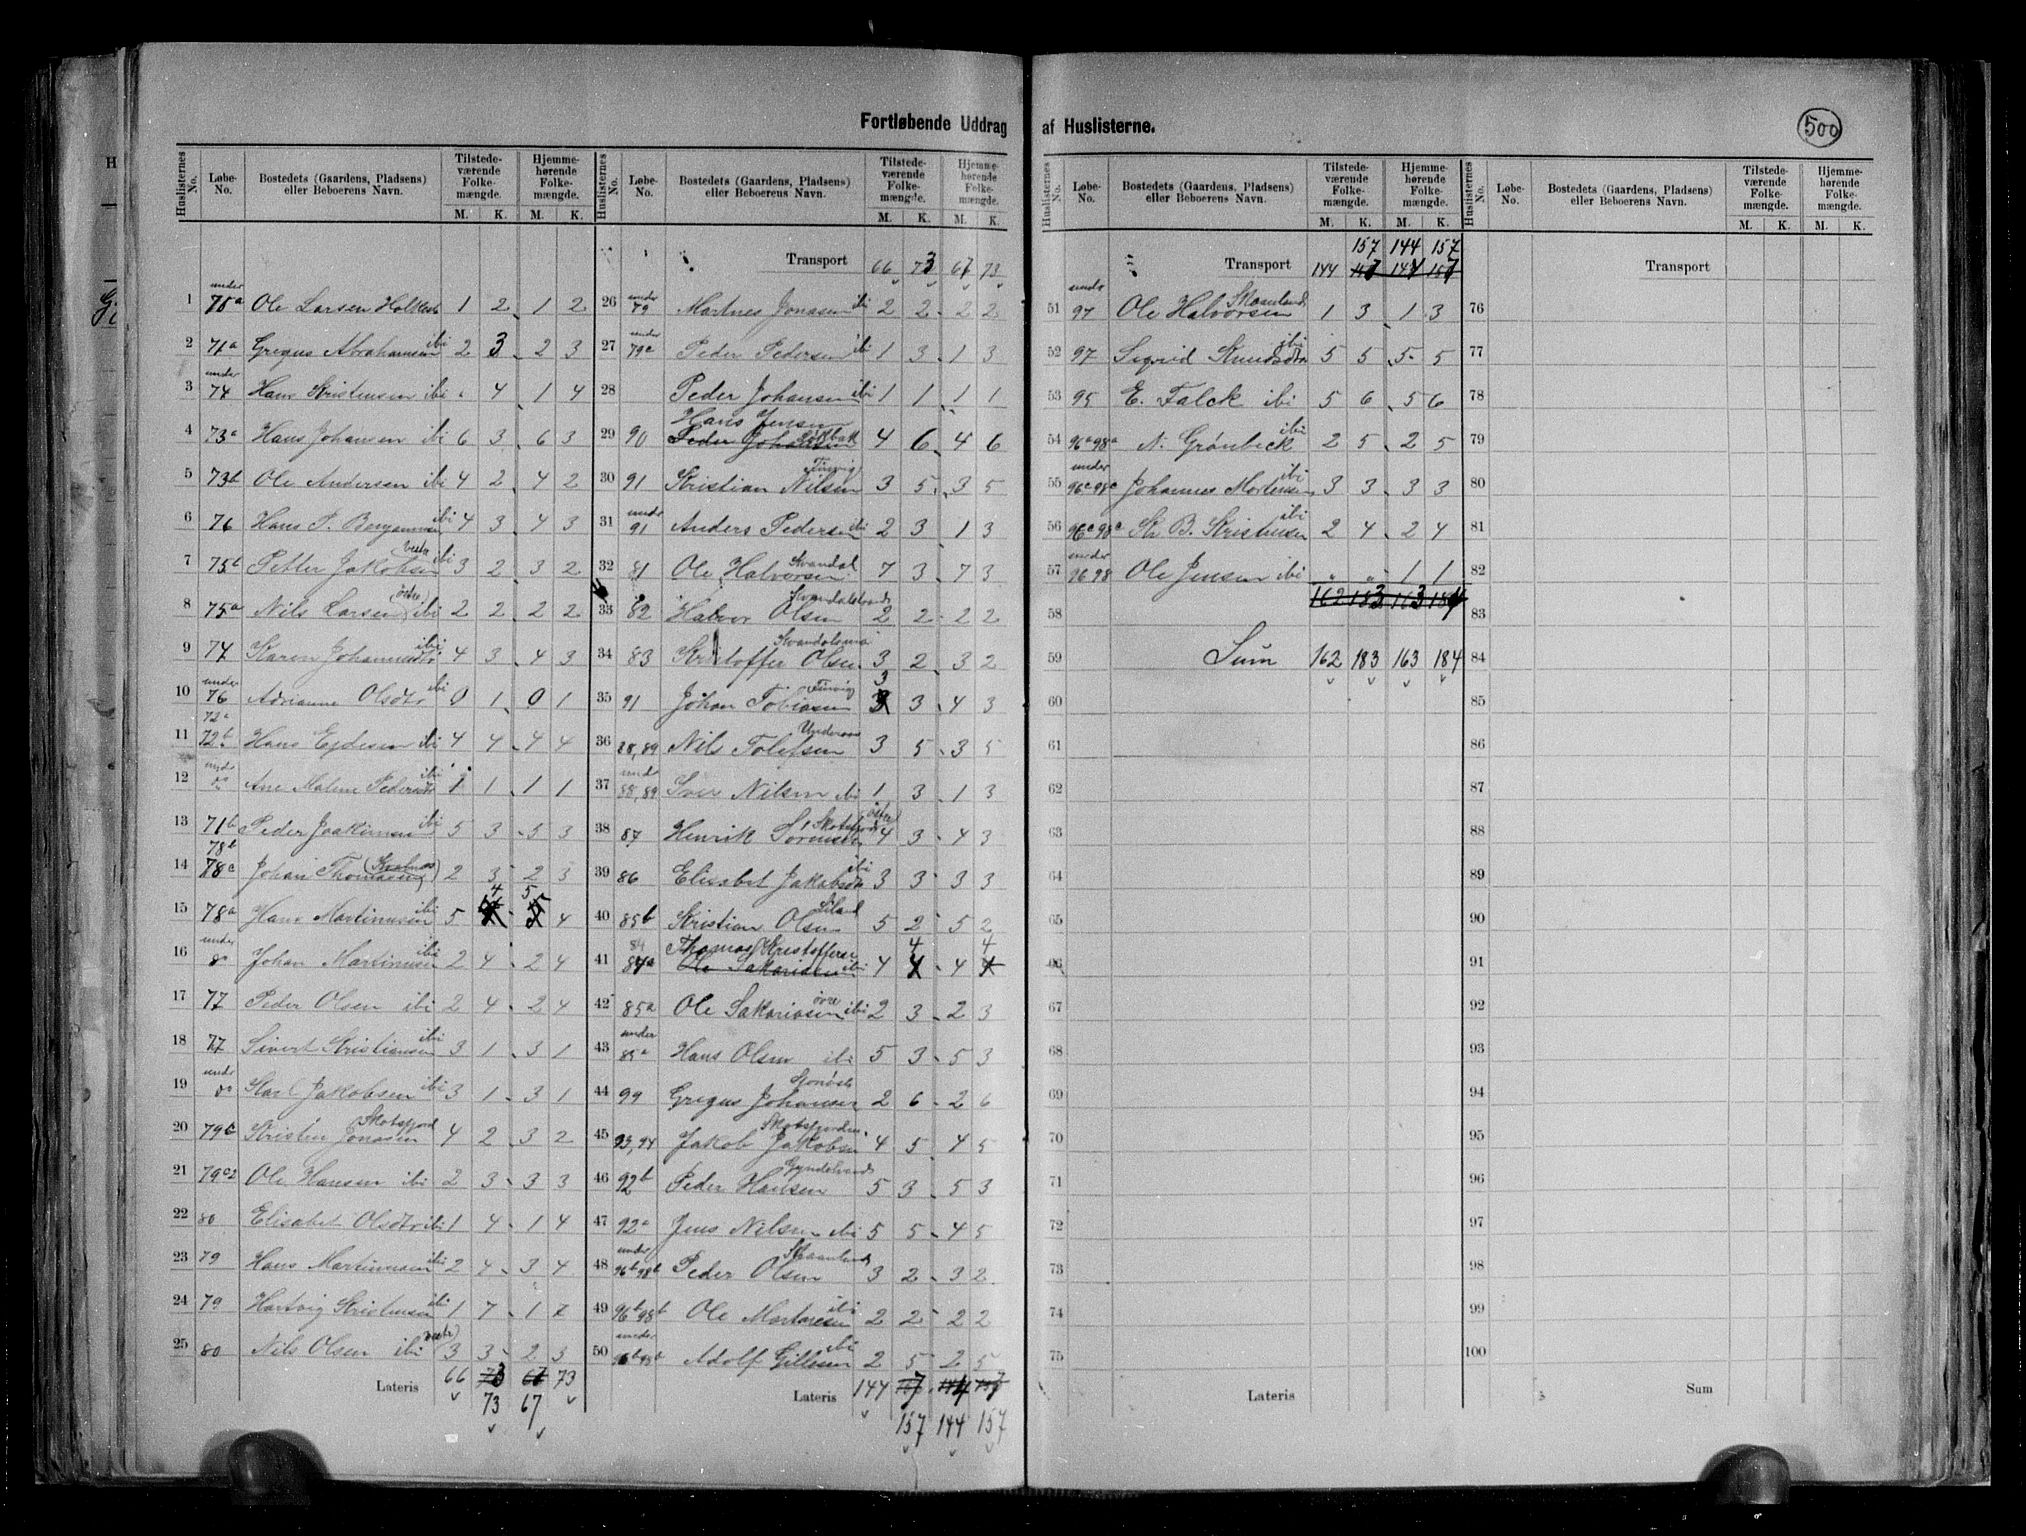 Fortløbende Uddrag af Huslisterne.
500
Huslisternes No. Løbe-No. Bostedets (Gaardens, Pladsens) eller Beboerens Navn. Tilstedeværende Folkemængde. M. K. Hjemmehørende Folkemængde. M. K.
1 under 75a Ole Larsen 1 2 1 2
2 71a Gregus Abrahamsen ibi 2 3 2 3
3 under 74 Hans Kristensen ibi " 4 1 4
4 73a Hans Johansen ibi 6 3 6 3
5 73b Ole Andersen ibi 4 2 4 2
6 76 Hans P. Benjaminsen ibi 4 3 4 3
7 75b Petter Jakobsen (vestre) ibi 3 2 3 2
8 75a Nils Larsen (østre) ibi 2 2 2 2
9 74 Karen Johannesdtr ibi 4 3 4 3
10 under 76 Adrianne Olsdtr ibi 0 1 0 1
11 72a 72b Hans Ejdesen ibi 4 4 4 4
12 under do Ane Malene Pedersdtr ibi 1 1 1 1
13 71b Peder Joakimsen ibi 5 3 5 3
14 78b 78c Johan Thomassen (Kvalnes) 2 3 2 3
15 78a Hans Martinussen ibi 5 4 5 4
16 under do Johan Martinussen ibi 2 4 2 4
17 77 Peder Olsen ibi 2 4 2 4
18 77 Sivert Kristiansen ibi 3 1 3 1
19 under do Karl Jakobsen ibi 3 1 3 1
20 79b Kristen Jonasen Skotsfjord 4 2 3 2
21 79c2 Ole Hansen ibi 2 3 3 3
22 80 Elisabet Olsdtr ibi 1 4 1 4
23 79 Hans Martinussen ibi 2 4 3 4
24 79 Hartvig Kristensen ibi 1 7 1 7
25 80 Nils Olsen ibi (vestre) 3 3 2 3
Lateris 66 73 67 73
73 67
Transport 66 73 67 73
26 under 79 Martnes Jonasen ibi 2 2 2 2
27 under 79c Peder Pedersen ibi 1 3 1 3
28 Peder Johansen ibi 1 1 1 1
29 90 Hans Jensen Peder Johansen 4 6 4 6
30 91 Kristian Nilsen Finvig 3 5 3 5
31 under 91 Anders Pedersen ibi 2 3 1 3
32 81 Ole Halvorsen Kvandal 7 3 7 3
33 82 Halvor Olsen 2 2 2 2
34 83 Kristoffer Olsen 3 2 3 2
35 91 Johan Tobiasen Finvig 3 3 4 3
36 88,89 Nils Tolefsen 3 5 3 5
37 under 88,89 Iver Nilsen ibi 1 3 1 3
38 87 Henrik Sørensen Skotsfjord østre 4 3 4 3
39 86 Elisabet Jakobsdtr ibi 3 3 3 3
40 85b Kristian Olsen 5 2 5 2
41 84 84a Thomas Kristoffersen Ole Sakariasen ibi 4 4 4 4
42 85a Ole Sakariasen øvre ibi 2 3 2 3
43 under 85a Hans Olsen ibi 5 3 5 3
44 99 Gregus Johansen 2 6 2 6
45 93,94 Jakob Jakobsen Skotsfjorden 4 5 4 5
46 92b Peder Hansen 5 3 5 3
47 92a Jens Nilsen ibi 5 5 4 5
48 under 96b 98b Peder Olsen Skaanland 3 2 3 2
49 96b 98b Ole Mortensen ibi 2 2 2 2
50 under 96b 98b Adolf Gillesen ibi 2 5 2 5
Lateris 144 157 144 157
157 144 157
157 144 157
Transport 144 157 144 157
51 under 97 Ole Halvorsen Skaanland 1 3 1 3
52 97 Sigrid Knudsdtr ibi 5 5 5 5
53 95 E. Falck ibi 5 6 5 6
54 96a 98a N. Grønbeck ibi 2 5 2 5
55 under 96c 98c Johannes Mortensen ibi 3 3 3 3
56 96c 98c Kr. B. Kristensen ibi 2 4 2 4
57 under 96 98 Ole Jensen ibi " " 1 1
58 162 183 163 184
59 Sum 162 183 163 184
60
61
62
63
64
65
66
67
68
69
70
71
72
73
74
75
Lateris
Transport
76
77
78
79
80
81
82
83
84
85
86
87
88
89
90
91
92
93
94
95
96
97
98
99
100
Sum